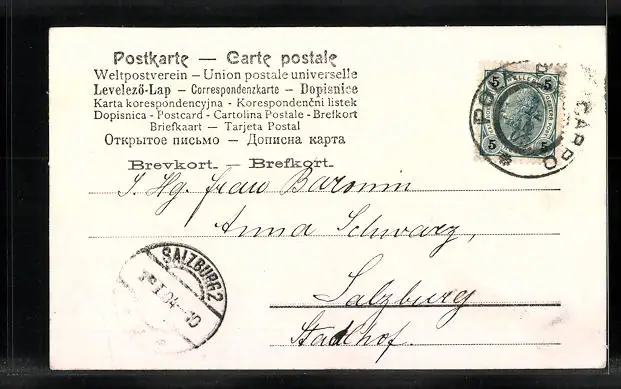 Postkarte — Carte postale
Weltpostverein – Union postale universelle
Levelező-Lap – Correspondenzkarte – Dopisnice
Karta korespondencyjna - Korespondenční listek
Dopisnica - Postcard - Cartolina Postale - Brefkort
Briefkaart – Tarjeta Postal
Открытое письмо – Дописна карта
Brevkort. – Brefkort.
5 5
POLA CARRO
5 5
I. Hg. Frau Baronin
Anna Schwarz,
SALZBURG 2
Salzburg
Stadthof.